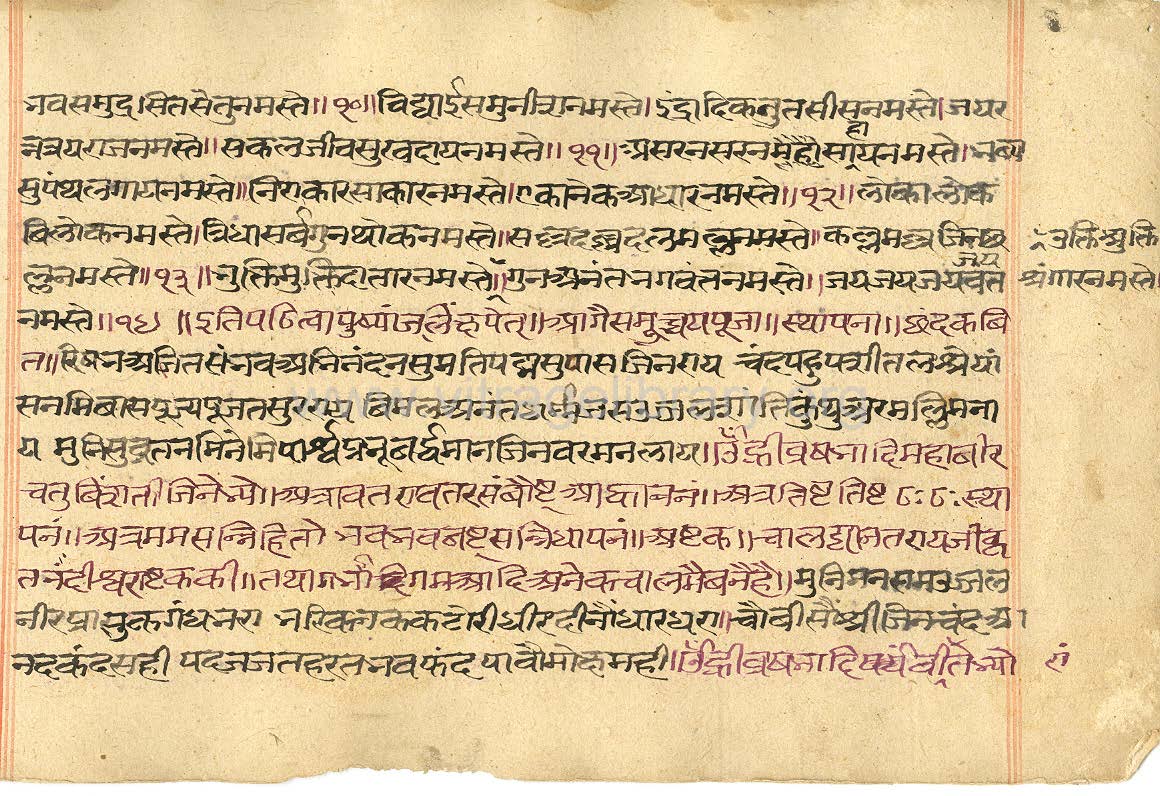 भवसमुद्रसितसेतुनमस्ते॥१०॥विद्याईसमुनीशनमस्ते।इंद्रादिकनुतसीसनमस्ते।जयर
त्नत्रयराजनमस्ते॥सकलजीवसुखदायनमस्ते॥११॥असरनसरन सहायनमस्ते।भव्य
सुपंथलगायनमस्ते॥निराकारसाकारनमस्ते।एकानेकआधारनमस्ते॥१२॥लोकालोक
बिलोकनमस्ते।त्रिधासर्बगुनथोकनमस्ते॥सल्लदल्लदलमल्लनमस्ते॥कल्लमल्लजित
ल्लनमस्ते॥१३॥भुक्तिमुक्तिदातारनमस्ते॥उक्तिसुक्ति श्रंगारनमस्ते।गुनअनंतभगवंतनमस्ते॥जयजयजयजयवंत
नमस्ते॥१४॥इतिपठित्वापुष्पांजलिंक्षपेत्॥आगैसमुच्चयपूजा॥स्थापना॥छंदकबि
त॥रिषभअजितसंभवअभिनंदनसुमतिपद्मसुपासजिनराय चंदपहुपशीतलश्रेयां
सनमिबासपूज्यपूजतसुरराय बिमलअनंतधर्मजसउज्जलशांतिकुंथुअरमल्लिमना
य मुनिसुव्रतनमिनेमिपार्श्वप्रभुबर्द्धमानजिनवरमनलाय॥ॐह्रीवृषभादिमहाबीर
चतुर्बिंशतीजिनेभ्यो॥अत्रावतरावतरसंबौष्ट्आह्वाननं॥अत्रतिष्टतिष्ट ठः ठः स्था
पनं॥अत्रममसन्निहितो भवभवबषट्सन्निधापनं॥अष्टक॥चालद्यानतरायजीकृ
तनंदीश्वराष्टककी॥तथागर्भादिगमआदिअनेकचालमैबनैहै॥मुनिमनसमउज्जल
नीरप्रासुकगंधभरा भरिकनककटोरीधीरदीनौंधारधरा॥चौबीसौंश्रीजिनचंदआ
नंदकंदसही पदजजतहरतभवफंद पावौमोक्षमही॥ॐह्रीवृषभादिबीरांतेभ्यो